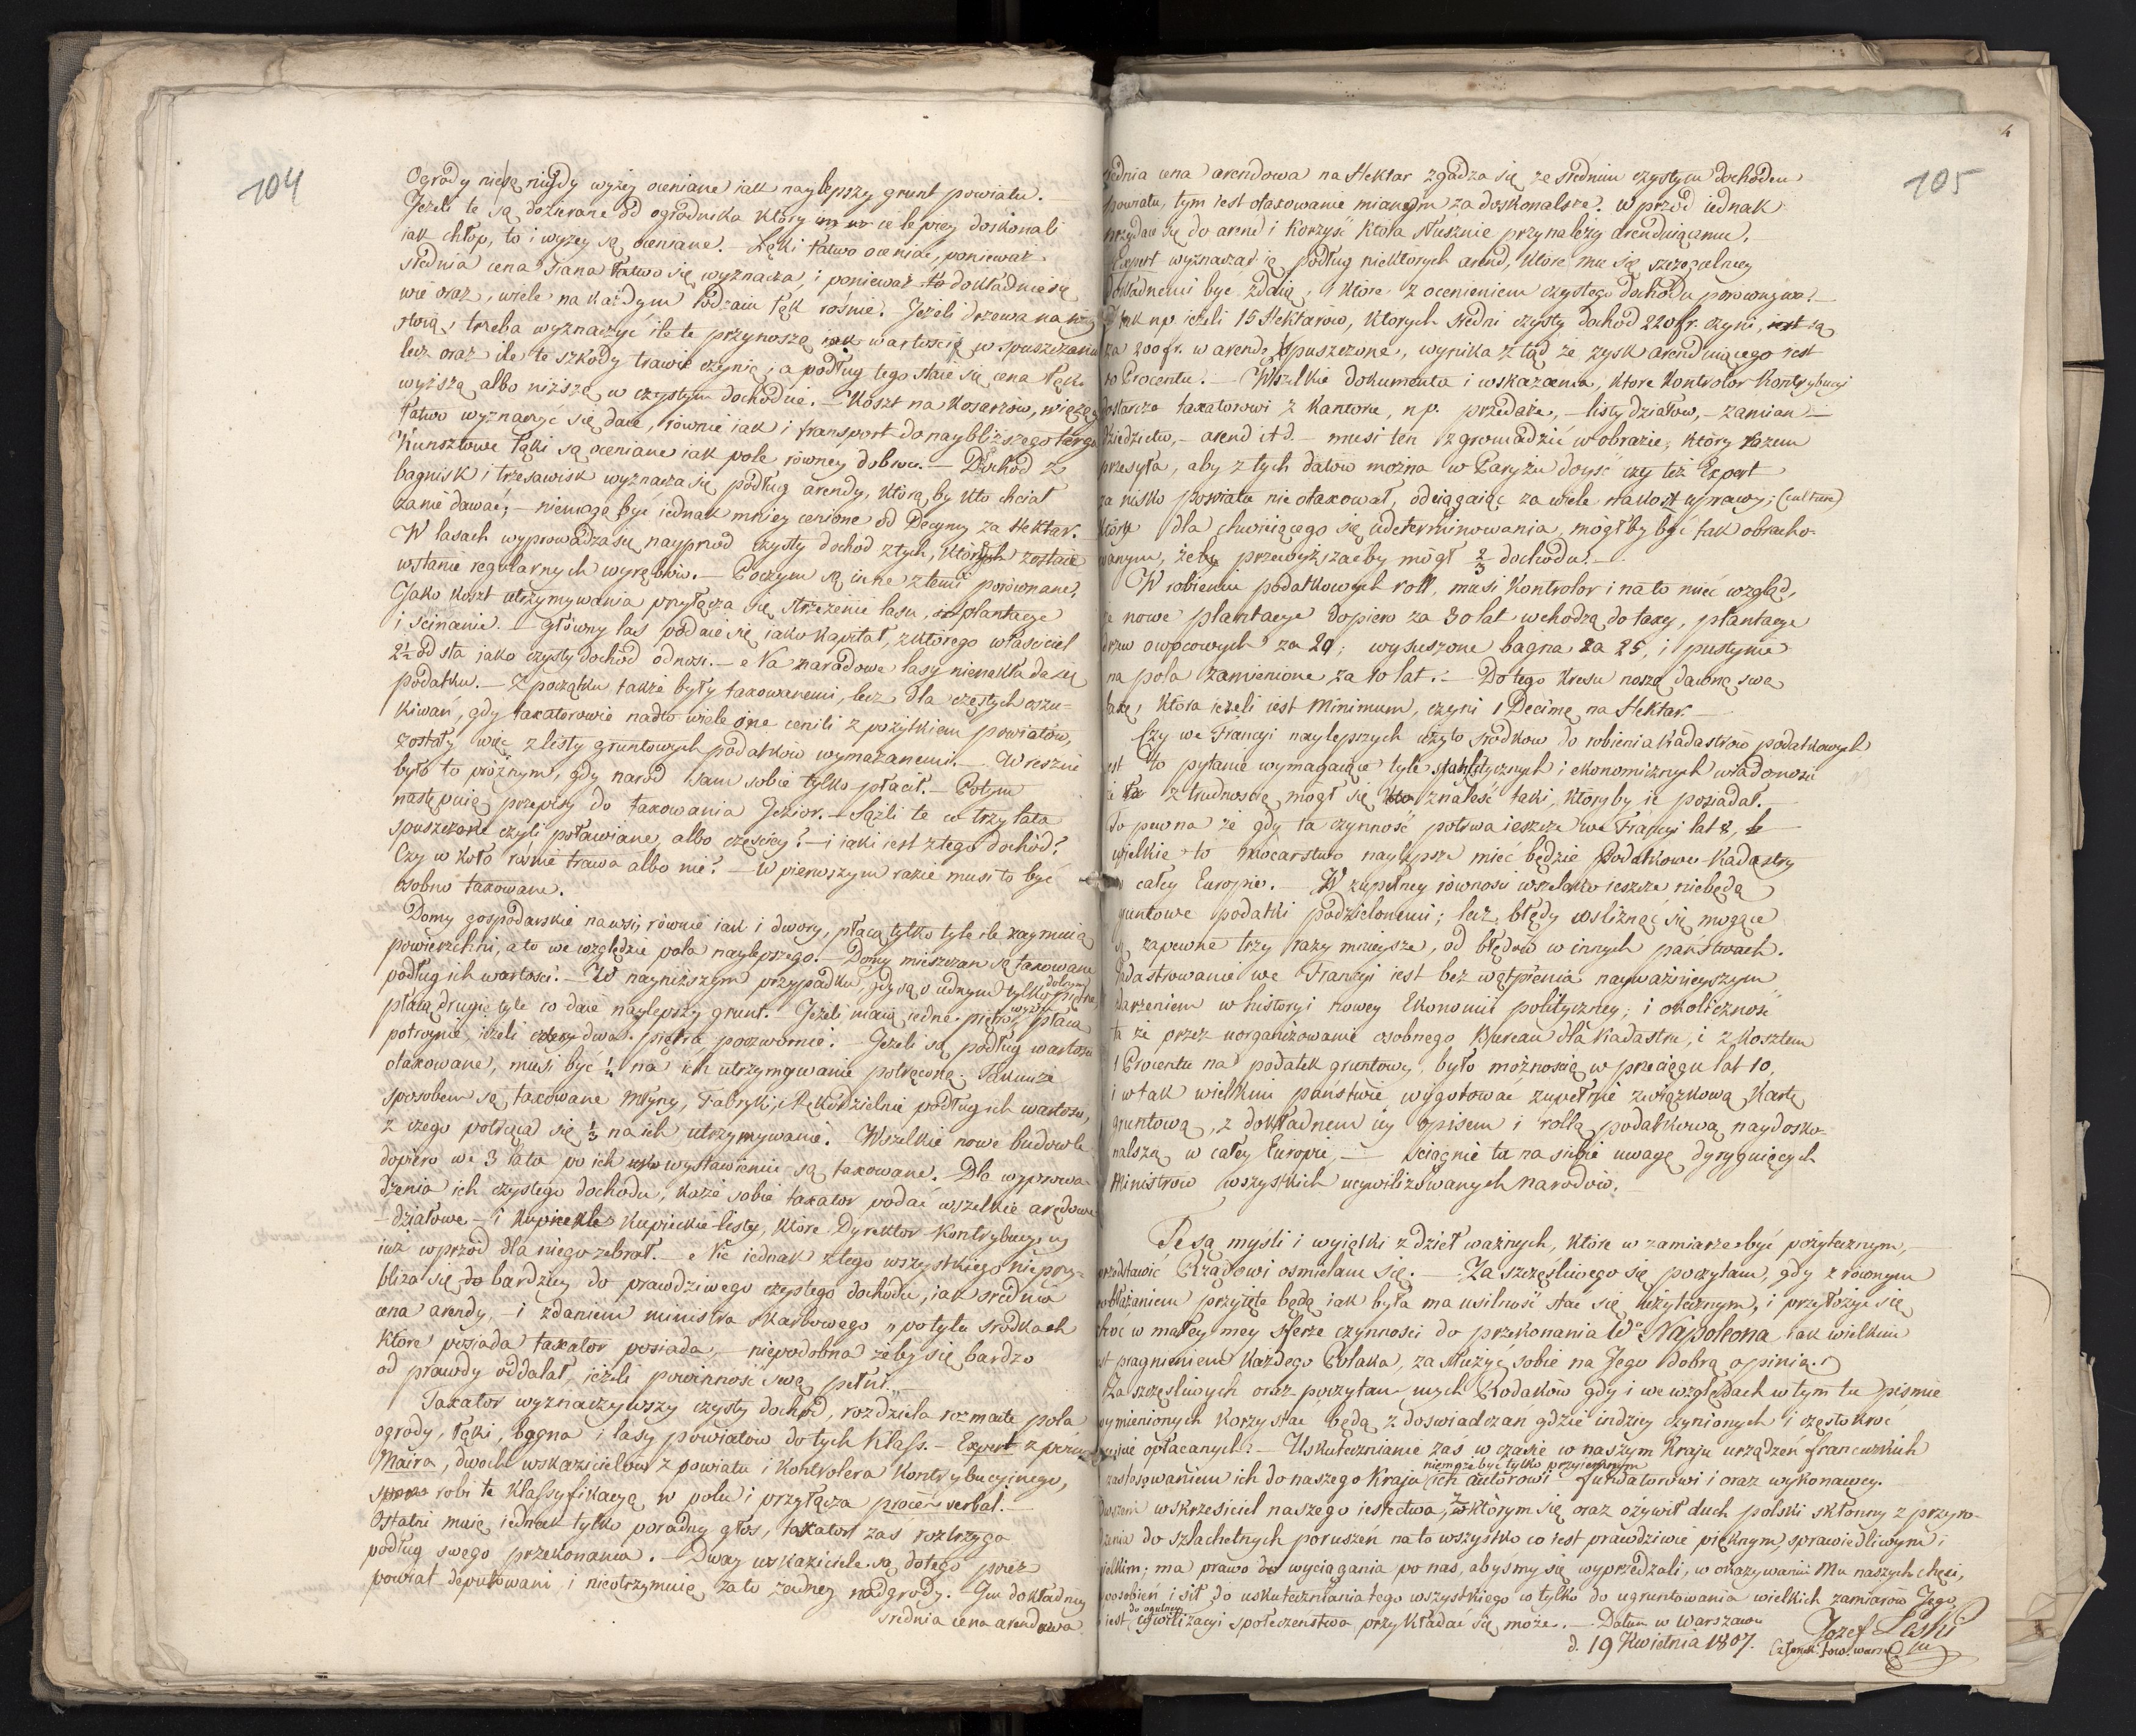 104
Ogrody niesą nigdy wyżej oceniane iak naylepszy grunt powiatu.
Jeżeli te są dozierane od ogrodnika który ie lepiey doskonali
iak chłop, to i wyżey są oceniane. – Łąki łatwo ocenić, ponieważ
srednia cena siana łatwo się wyznacza, i ponieważ dokładnie się
wie oraz, wiele na każdym rodzaiu łąk rośnie. Jeżeli drzewa na niey
stoią, trzeba wyznaczyć ile te przynoszą wartością w spuszczaniu
lecz oraz ile te szkody trawie czynią, a podług tego staie się cena łąki
wyższą albo niższą w czystym dochodzie. – Koszt na Kosarzów, więzę
łatwo wyznaczyć się daie, równie iak i transport do naybliższego targu
Kunsztowe łąki są oceniane iak pole równey dobroci. – Dochód z
bagnisk i trzesawisk wyznacza się podług arendy, którą by kto chciał
zanie dawać; – niemogą być iednak mniey cenione od Decymy za Hektar.
W lasach wyprowadza się nayprzod czysty dochod z tych, których zostaie
w stanie regularnych wyrębów. – Poczym są inne z temi porównane.
Jako koszt utrzymywania przyłącza się strzeżenie lasu, plantacye
i scinanie. – Główny las podaie się iako kapitał, z którego właściciel
2½ od sta jako czysty dochód odnosi. – Na narodowe lasy nienakłada się
podatku. – Z początku także były taxowanemi, lecz dla częstych oszu-
kiwań, gdy taxatorowie nadto wiele one cenili z pożytkiem powiatów,
zostały więc z listy gruntowych podatków wymazanemi. – Wreszcie
było to próżnym, gdy naród sam sobie tylko płacił. – Potym
następuią przepisy do taxowania Jezior. – Jeżli te co trzy lata
spuszczone czyli poławiane, albo częściey? – i iaki iest z tego dochód?
Czy w koło rośnie trawa albo nie? – W pierwszym razie musi to być
osobno taxowane.
Domy gospodarskie na wsi, równie iak i dwory, płacą tylko tyle ile zaymuią
powierzchni, a to we względzie pola naylepszego. – Domy mieszczan są taxowane
podług ich wartości. – W nayniższym przypadku, gdy są o iednym tylko dolnym piętrze,
płacą drugie tyle co daie naylepszy grunt. – Jeżeli maią iedne piętro wyższe, płacą
potroynie, ieżeli dwa piętra, poczwornie. – Jeżeli są podług wartości
otaxowane, musi być ¼ na ich utrzymywanie potrącona. Takimże
sposobem są taxowane Młyny, Fabryki, i Rękodzielnie podług ich wartości,
z czego potrąca się ⅓ na ich utrzymywanie. Wszelkie nowe budowle
dopiero we 3 lata po ich wystawieniu są taxowane. – Dla wyprowa-
dzenia ich czystego dochodu, każe sobie taxator podać wszelkie arędowe
– działowe – i kupieckie listy, które Dyrektor Kontrybucyiny
iuż wprzod dla niego zebrał. – Nic iednak z tego wszystkiego nieprzy-
bliża się bardziey do prawdziwego czystego dochodu, iak srednia
cena arendy, – i zdaniem ministra skarbowego „po tylu srodkach
które posiada taxator posiada, – niepodobna żeby się bardzo
od prawdy oddalał, ieżeli powinność swą pełni.
Taxator wyznaczywszy czysty dochód, rozdziela rozmaite pola
ogrody, łąki, bagna i lasy powiatów do tych klass. – Expert z
Maira, dwoch wskazicielów z powiatu i Kontrolera Kontrybucyinego,
robi te klassyfikacyą w polu i przyłącza procès verbal. –
Ostatni maią iednak tylko poradny głos, taxator zaś roztrzyga
podług swego przekonania. – Dway wskaziciele są do tego przez
powiat deputowani, i nieotrzymuią za to żadney nadgrody. Im dokładniey
srednia cena arendowa
105
srednia cena arendowa na Hektar zgadza się ze srednim czystym dochodem
powiatu, tym iest otaxowanie mianym za doskonalsze. W przod iednak
przydaie się do arend i korzyść która słusznie przynależy arenduiącemu.
Expert wyznacza ią podług niektorych arend, które mu się szczegulniey
dokładnemi być zdaią, i które z ocenieniem czystego dochodu porownywa. –
Tak np. ieżeli 15 Hektarów, których sredni czysty dochód 220 fr. czyni, są
za 200 fr. w arendę wpuszczone, wynika z tąd że zysk arenduiącego iest
10 Procentu. – Wszelkie dokumenta i wskazania, które Kontrolor Kontrybucyi
dostarcza taxatorowi z Kantonu, np. przedaże, – listy działow, – zamian –
dziedzictw, – arend itd. – musi ten zgromadzić w obrazie, który razem
przesyła, aby z tych datów można w Paryżu doyść czy też Expert
za nisko powiatu nie otaxował, odciągaiąc za wiele na koszt uprawy; (culture)
który dla chwieiącego się udeterminowania, mógłby być tak obracho-
wanym, że przewyższaćby mógł ⅔ dochodu. –
W robieniu podatkowych roll, musi Kontrolor i na to mieć wzgląd,
że nowe plantacye dopiero za 30 lat wchodzą do taxy, plantacye
drzew owocowych za 20; wysuszone bagna za 25, i pustynie
na pola zamienione za 10 lat. – Do tego kresu noszą dawną swą
taxę, która ieżeli iest Minimum, czyni 1 Decimę na Hektar. –
Czy we Francyi naylepszych użyto srodkow do robienia Kadastrów podatkowych
iest to pytanie wymagaiące tyle statystycznych i ekonomicznych wiadomości
że z trudnością mógł się znaleść taki, któryby ie posiadał. –
To pewna że gdy ta czynność potrwa ieszcze we Francyi lat 8,
wielkie to mocarstwo naylepsze mieć będzie Podatkowe Kadastry
w całey Europie. – W zupełney równości wszelako ieszcze niebędą
gruntowe podatki podzielonemi; lecz błędy wsliznąć się mogące
są zapewne trzy razy mnieysze, od błędów w innych państwach.
Kadastrowanie we Francyi iest bez wątpienia nayważnieyszym
zdarzeniem w historyi nowey Ekonomii polityczney; i okoliczność
ta że przez uorganizowanie osobnego Bureau dla Kadastru, i z kosztem
1 Procentu na podatek gruntowy, było możnością w przeciągu lat 10,
i w tak wielkim państwie wygotować zupełnie związkową Kartę
gruntową, z dokładnem iey opisem i rollą podatkową naydosko-
nalszą w całey Europie, – sciągnie tu na siebie uwagę dyryguiących
Ministrow wszystkich ucywilizowanych narodów. –
Te są myśli i wyiątki z dzieł ważnych, które w zamiarze być pożytecznym,
przedstawić Rządowi osmielam się. – Za szczęśliwego się poczytam, gdy z równym
pobłażaniem przyięte będą iak była ma usilność stać się użytecznym, i przyłożyć się
choć w małey mey sferze czynności do przekonania Wo Napoleona, iak wielkim
iest pragnieniem każdego Polaka, zasłużyć sobie na Jego dobrą opinią.
Za szczęsliwych oraz poczytam mych Rodaków gdy i we względach w tym tu pismie
wymienionych korzystać będą z doswiadczań gdzie indziey czynionych i częstokroć
opłacanych. – Uskutecznianie zaś w czasie w naszym Kraju urządzeń francuzkich
z zastosowaniem ich do naszego Kraju niemoże być tylko przyiemnym ich autorowi – fundatorowi i oraz wykonawcy.
wskrzesiciel naszego iestectwa, w którym się oraz ożywił duch polski skłonny z przyro-
dzenia do szlachetnych poruszeń na to wszystko co iest prawdziwie pięknym, sprawiedliwym i
wielkim; ma prawo do wyciągania po nas, abysmy się wyprzedzali, w okazywaniu Mu naszych chęci,
sposobień i sił, do uskuteczniania tego wszystkiego co tylko do ugruntowania wielkich zamiarów Jego,
i iest do ogulney cywilizacyi społeczeństwa przykładać się może. – Datum w Warszawie
d. 19 Kwietnia 1807.
Jozef Łęski
Członek Tow. warsz.